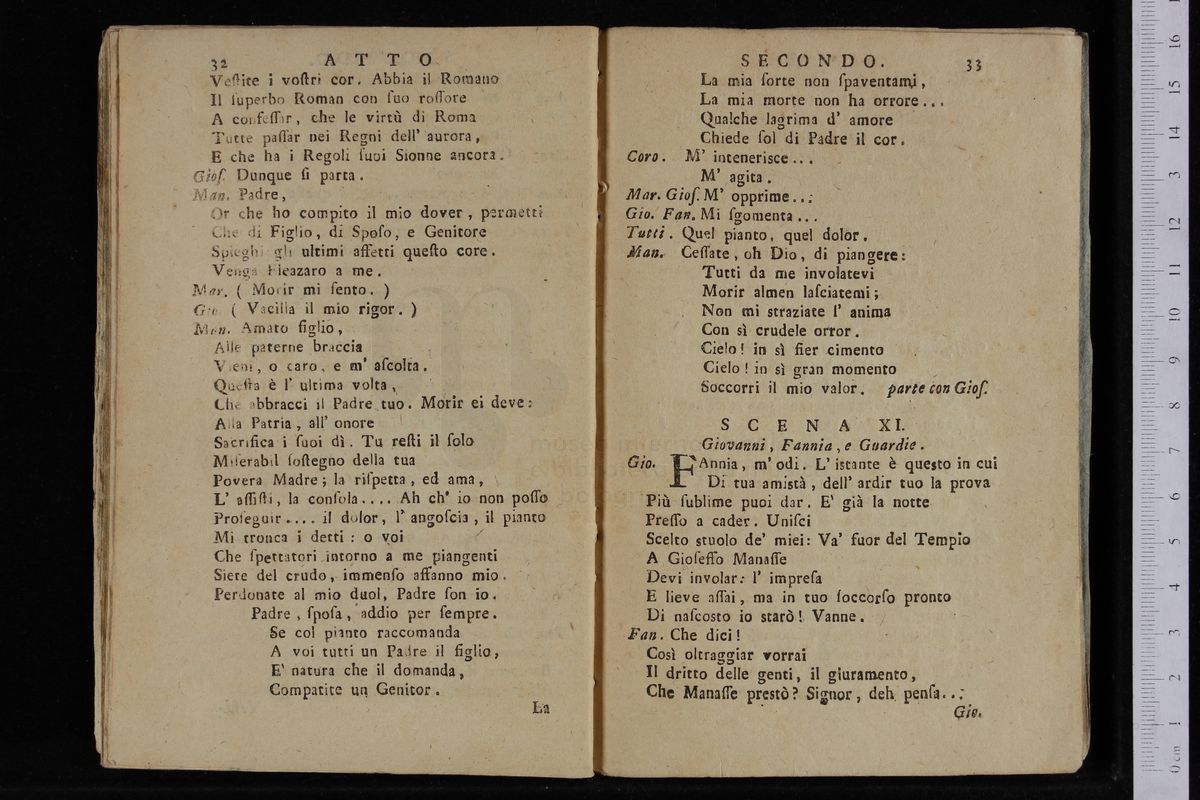 32 ATTO
Veſtite i voſtri cor. Abbia il Romano
Il ſuperbo Roman con ſuo roſſore
A confeſſar, che le virtù di Roma
Tutte paſſar nei Regni dell' aurora,
E che ha i Regoli ſuoi Sionne ancora.
Gioſ. Dunque ſi parta.
Man. Padre,
Or che ho compito il mio dover, permetti
Che di Figlio, di Spoſo, e Genitore
Spieghi gli ultimi affetti queſto core.
Venga Eleazaro a me.
Mar. ( Morir mi ſento. )
Gio. ( Vacilla il mio rigor. )
Man. Amato figlio,
Alle paterne braccia
Vieni, o caro, e m' aſcolta.
Queſta è l' ultima volta,
Che abbracci il Padre tuo. Morir ei deve:
Alla Patria, all' onore
Sacrifica i ſuoi dì. Tu reſti il ſolo
Miſerabil ſoſtegno della tua
Povera Madre; la riſpetta, ed ama,
L' aſſiſti, la conſola.... Ah ch' io non poſſo
Proſeguir.... il dolor, l' angoſcia, il pianto
Mi tronca i detti: o voi
Che ſpettatori intorno a me piangenti
Siete del crudo, immenſo affanno mio.
Perdonate al mio duol, Padre ſon io.
Padre, ſpoſa, addio per ſempre.
Se col pianto raccomanda
A voi tutti un Padre il figlio,
E' natura che il domanda,
Compatite un Genitor.
La
SECONDO. 33
La mia ſorte non ſpaventami,
La mia morte non ha orrore...
Qualche lagrima d' amore
Chiede ſol di Padre il cor.
Coro. M' intenerisce...
M' agita.
Mar. Gioſ. M' opprime..:
Gio. Fan. Mi ſgomenta...
Tutti. Quel pianto, quel dolòr.
Man. Ceſſate, oh Dio, di piangere:
Tutti da me involatevi
Morir almen laſciatemi;
Non mi straziate l' anima
Con sì crudele orror.
Cielo! in sì fier cimento
Cielo! in sì gran momento
Soccorri il mio valor. parte con Gioſ.
SCENA XI.
Giovanni, Fannia, e Guardie.
Gio. FAnnia, m' odi. L' istante è questo in cui
Di tua amistà, dell' ardir tuo la prova
Più ſublime puoi dar. E' già la notte
Preſſo a cader. Uniſci
Scelto stuolo de' miei: Va' fuor del Tempio
A Gioſeffo Manaſſe
Devi involar: l' impreſa
E lieve aſſai, ma in tuo ſoccorſo pronto
Di naſcosto io starò! Vanne.
Fan. Che dici!
Così oltraggiar vorrai
Il dritto delle genti, il giuramento,
Che Manaſſe prestò? Signor, deh penſa..:
Gio.